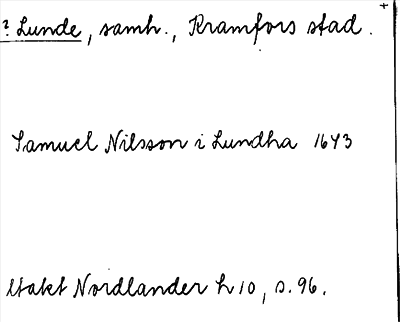 ? Lunde, samh., Kramfors stad.
Samuel Nilsson i Lundha 1643
Utakt Nordlander h 10, s. 96.